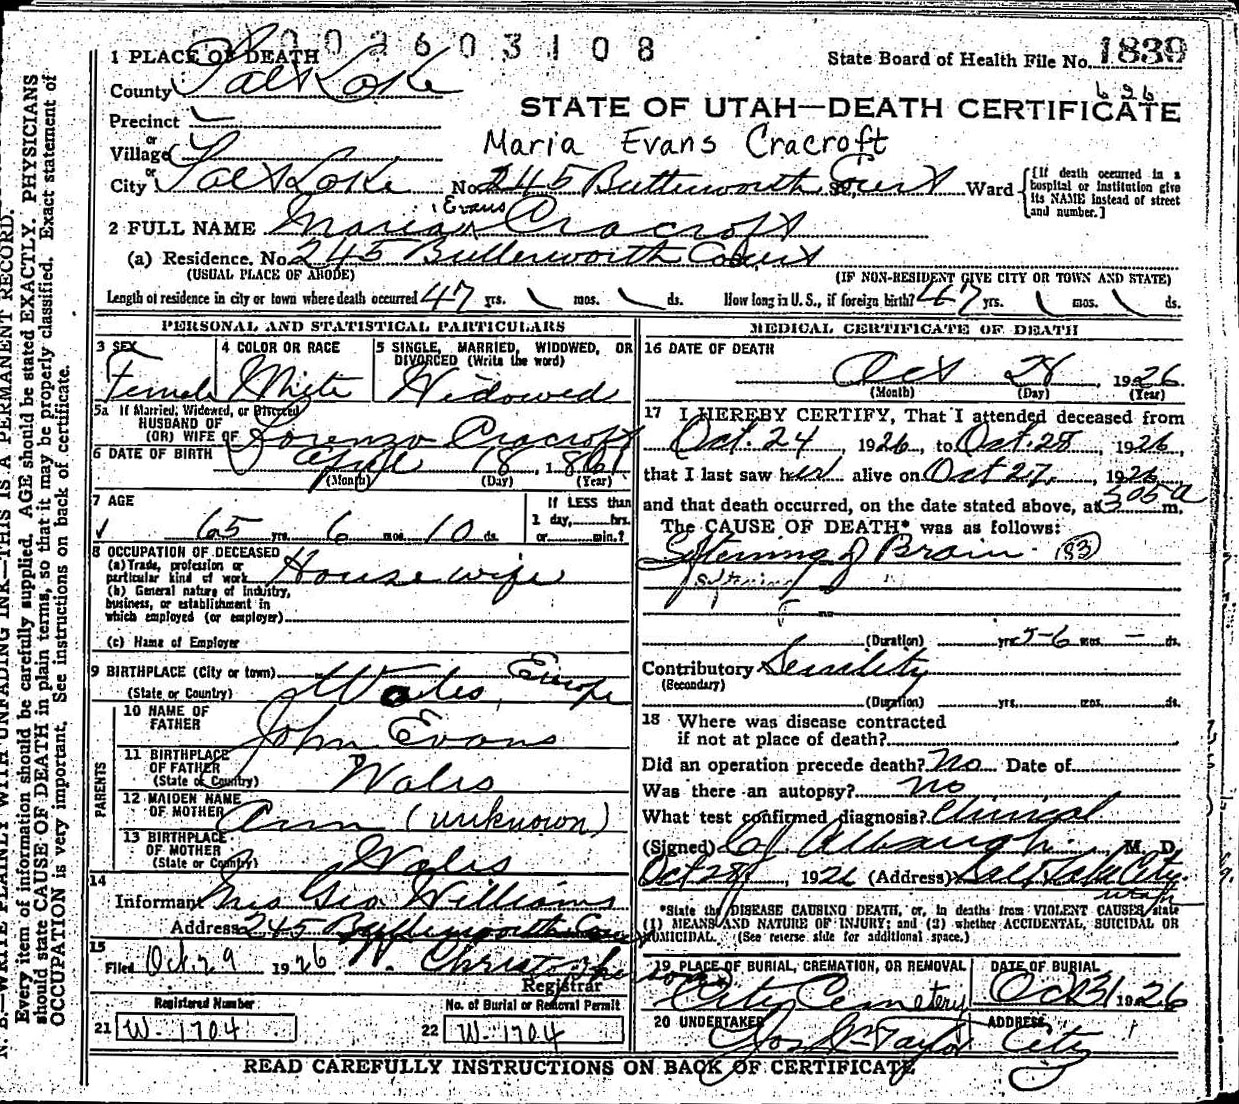 002603108
1 PLACE OF DEATH
State Board of Health File No. 1839
County Salt Lake
626
STATE OF UTAH—DEATH CERTIFICATE
Precinct
or
Village
Maria Evans Cracroft
or
City Salt Lake No. 245 Butterworth St., Court Ward
[If death occurred in a hospital or institution give its NAME instead of street and number.]
2 FULL NAME Maria Evans Cracroft
(a) Residence. No. 245 Butterworth Court
(USUAL PLACE OF ABODE) (IF NON-RESIDENT GIVE CITY OR TOWN AND STATE)
Length of residence in city or town where death occurred 47 yrs. mos. ds. How long in U. S., if foreign birth? 47 yrs. mos. ds.
PERSONAL AND STATISTICAL PARTICULARS
3 SEX
Female
4 COLOR OR RACE
White
5 SINGLE, MARRIED, WIDOWED, OR DIVORCED (Write the word)
Widowed
5a If Married, Widowed, or Divorced
HUSBAND OF
(OR) WIFE OF Lorenzo Cracroft
6 DATE OF BIRTH April 18, 1861
(Month) (Day) (Year)
7 AGE
65 yrs. 6 mos. 10 ds.
If LESS than
1 day, hrs.
or min.?
8 OCCUPATION OF DECEASED
(a) Trade, profession or
particular kind of work Housewife
(b) General nature of industry,
business, or establishment in
which employed (or employer)
(c) Name of Employer
9 BIRTHPLACE (City or town)
(State or Country) Wales, Europe
PARENTS
10 NAME OF FATHER
John Evans
11 BIRTHPLACE OF FATHER
(State or Country) Wales
12 MAIDEN NAME OF MOTHER
Ann (unknown)
13 BIRTHPLACE OF MOTHER
(State or Country) Wales
14
Informant Mrs Geo Williams
Address 245 Butterworth Court
15
Filed Oct. 29 1926 W. Christopherson
Registrar
Registered Number
21 W-1704
No. of Burial or Removal Permit
22 W-1704
MEDICAL CERTIFICATE OF DEATH
16 DATE OF DEATH
Oct 28, 1926
(Month) (Day) (Year)
17 I HEREBY CERTIFY, That I attended deceased from
Oct. 24, 1926, to Oct. 28, 1926,
that I last saw her alive on Oct 27, 1926
and that death occurred, on the date stated above, at 305 a m.
The CAUSE OF DEATH* was as follows:
Softening of Brain (83)
Softening "
(Duration) yrs 5-6 mos. - ds.
Contributory Senility
(Secondary)
(Duration) yrs. mos. ds.
18 Where was disease contracted
if not at place of death?
Did an operation precede death? No Date of
Was there an autopsy? no
What test confirmed diagnosis? Clinical
(Signed) Albaugh M. D.
Oct 28, 1926 (Address) Salt Lake City.
Utah
*State the DISEASE CAUSING DEATH, or, in deaths from VIOLENT CAUSES, state
(1) MEANS AND NATURE OF INJURY; and (2) whether ACCIDENTAL, SUICIDAL OR
HOMICIDAL. (See reverse side for additional space.)
19 PLACE OF BURIAL, CREMATION, OR REMOVAL
City Cemetery
DATE OF BURIAL
Oct 31 1926
20 UNDERTAKER
Jos Wm Taylor
ADDRESS
City
READ CAREFULLY INSTRUCTIONS ON BACK OF CERTIFICATE
N. B.—WRITE PLAINLY WITH UNFADING INK—THIS IS A PERMANENT RECORD.
Every item of information should be carefully supplied. AGE should be stated EXACTLY. PHYSICIANS
should state CAUSE OF DEATH in plain terms, so that it may be properly classified. Exact statement of
OCCUPATION is very important. See instructions on back of certificate.